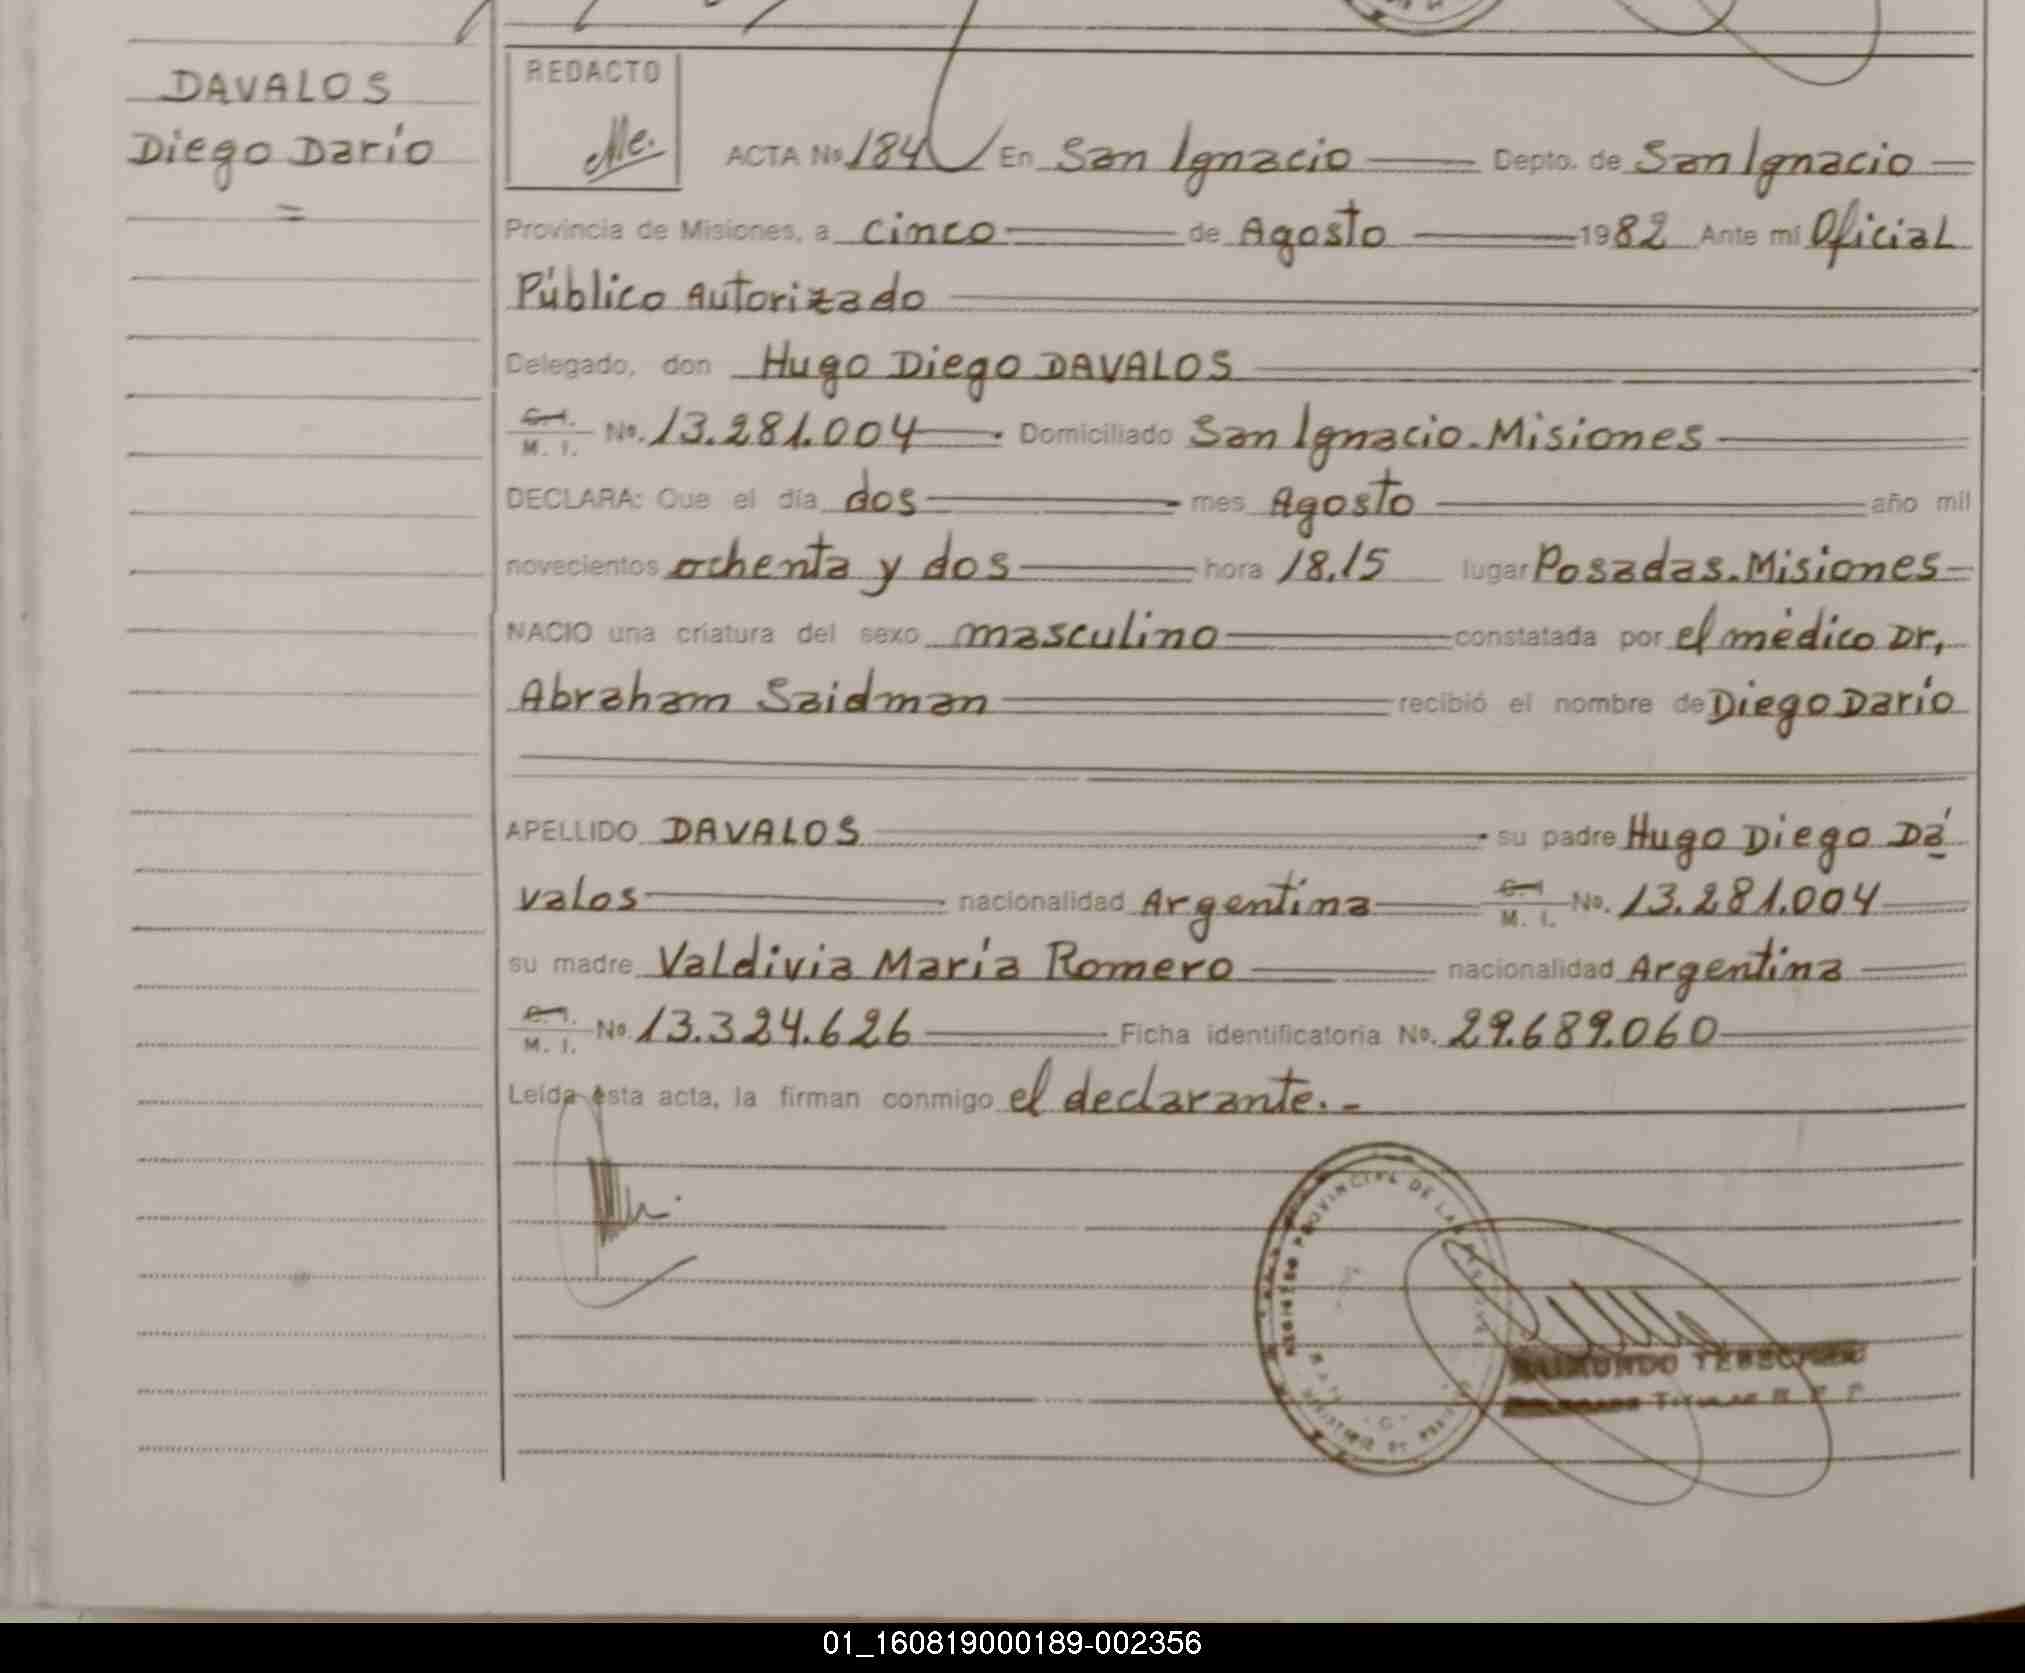 DAVALOS
Diego Darío
=
REDACTO
ACTA No 184 En San Ignacio Depto. de San Ignacio
Provincia de Misiones, a cinco de Agosto 1982 Ante mí Oficial
Público Autorizado
Delegado, don Hugo Diego DAVALOS
C. I. M. I. No. 13.281.004 Domiciliado San Ignacio. Misiones
DECLARA: Que el día dos mes Agosto año mil
novecientos ochenta y dos hora 18.15 lugar Posadas. Misiones
NACIO una criatura del sexo masculino constatada por el médico Dr,
Abraham Saidman recibió el nombre de Diego Darío
APELLIDO DAVALOS su padre Hugo Diego Dá
valos nacionalidad Argentina C. I. M. I. No. 13.281.004
su madre Valdivia María Romero nacionalidad Argentina
C. I. M. I. No. 13.324.626 Ficha identificatoria No. 29.689.060
Leída esta acta, la firman conmigo el declarante. -
REGISTRO PROVINCIAL DE LAS
RAIMUNDO
TITULAR R. P. P.
01_160819000189-002356